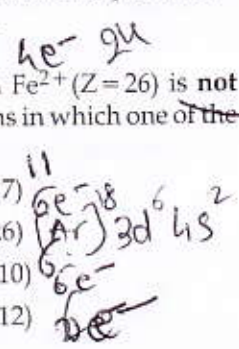 4e⁻ 24
Fe²⁺ (Z = 26) is not
ns in which one of the
11
7) 6e⁻
6) (Ar)¹⁸ 3d⁶ 4s²
10) 6e⁻
12)